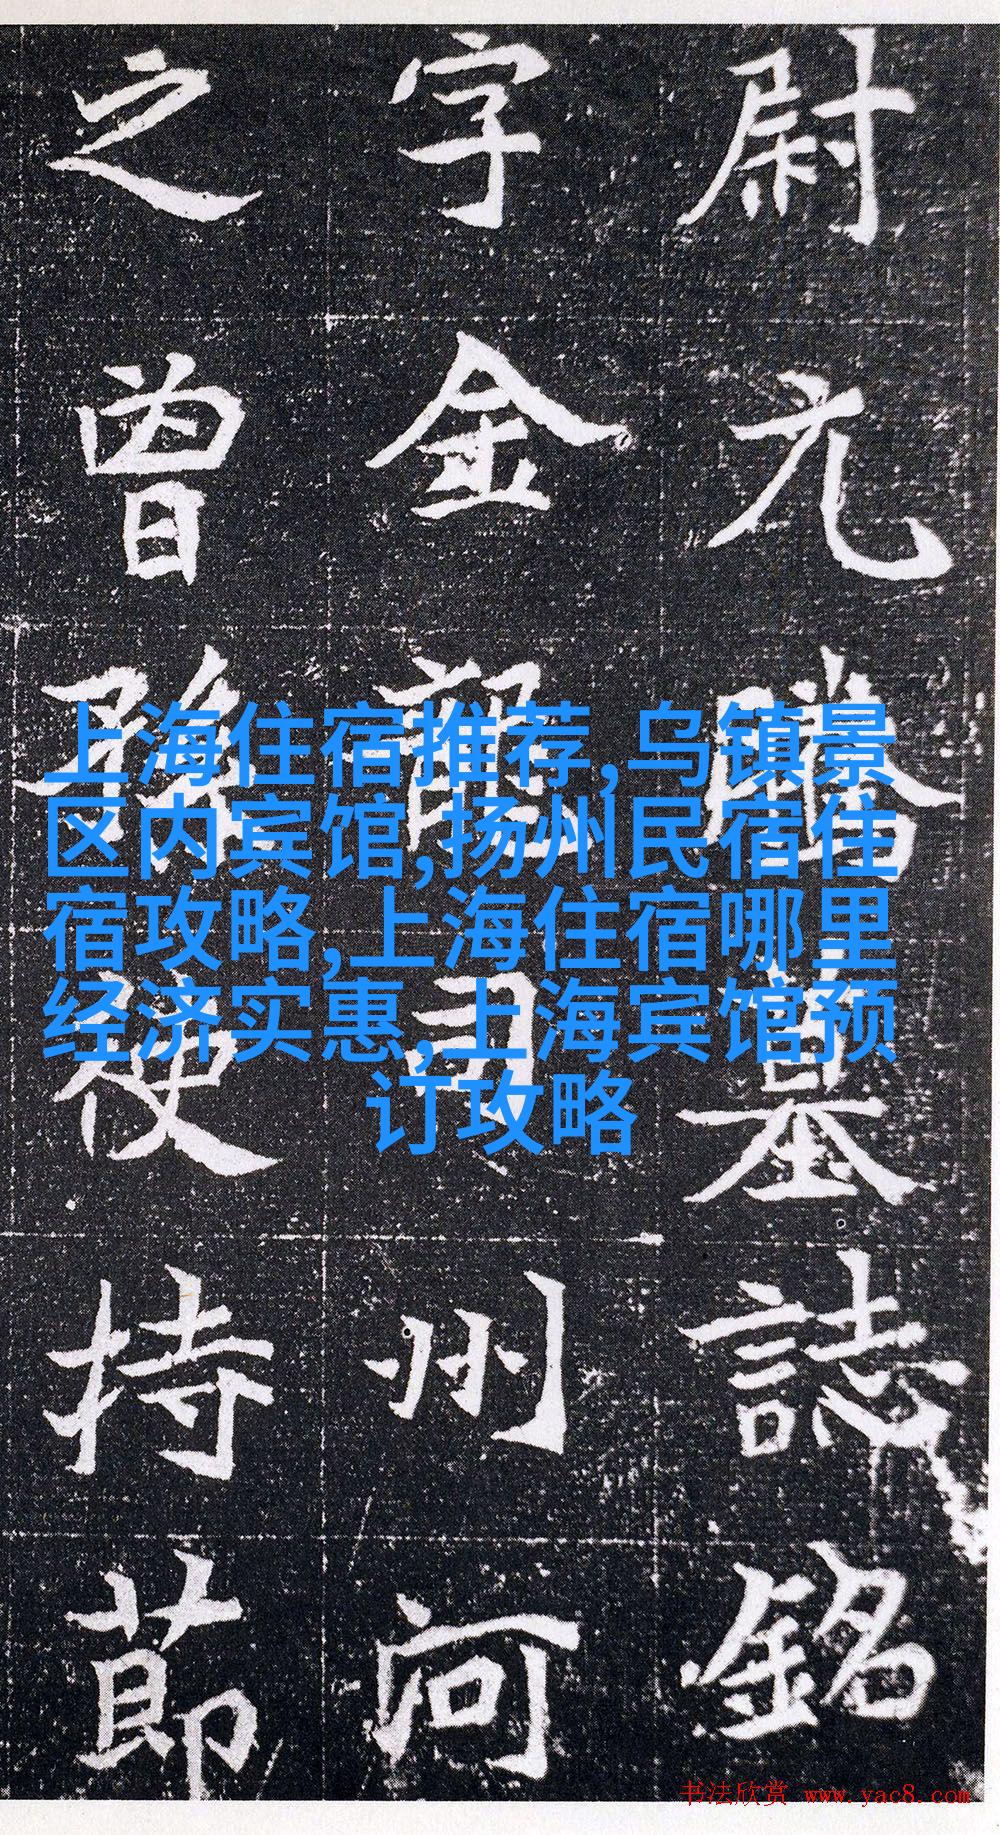 尉元騰墓誌銘
字金龍司州河
之曾孫使持節
上海住宿推荐,乌镇景
区内宾馆,扬州民宿住
宿攻略,上海住宿哪里
经济实惠,上海宾馆预
订攻略
书法欣赏 www.yac8.com